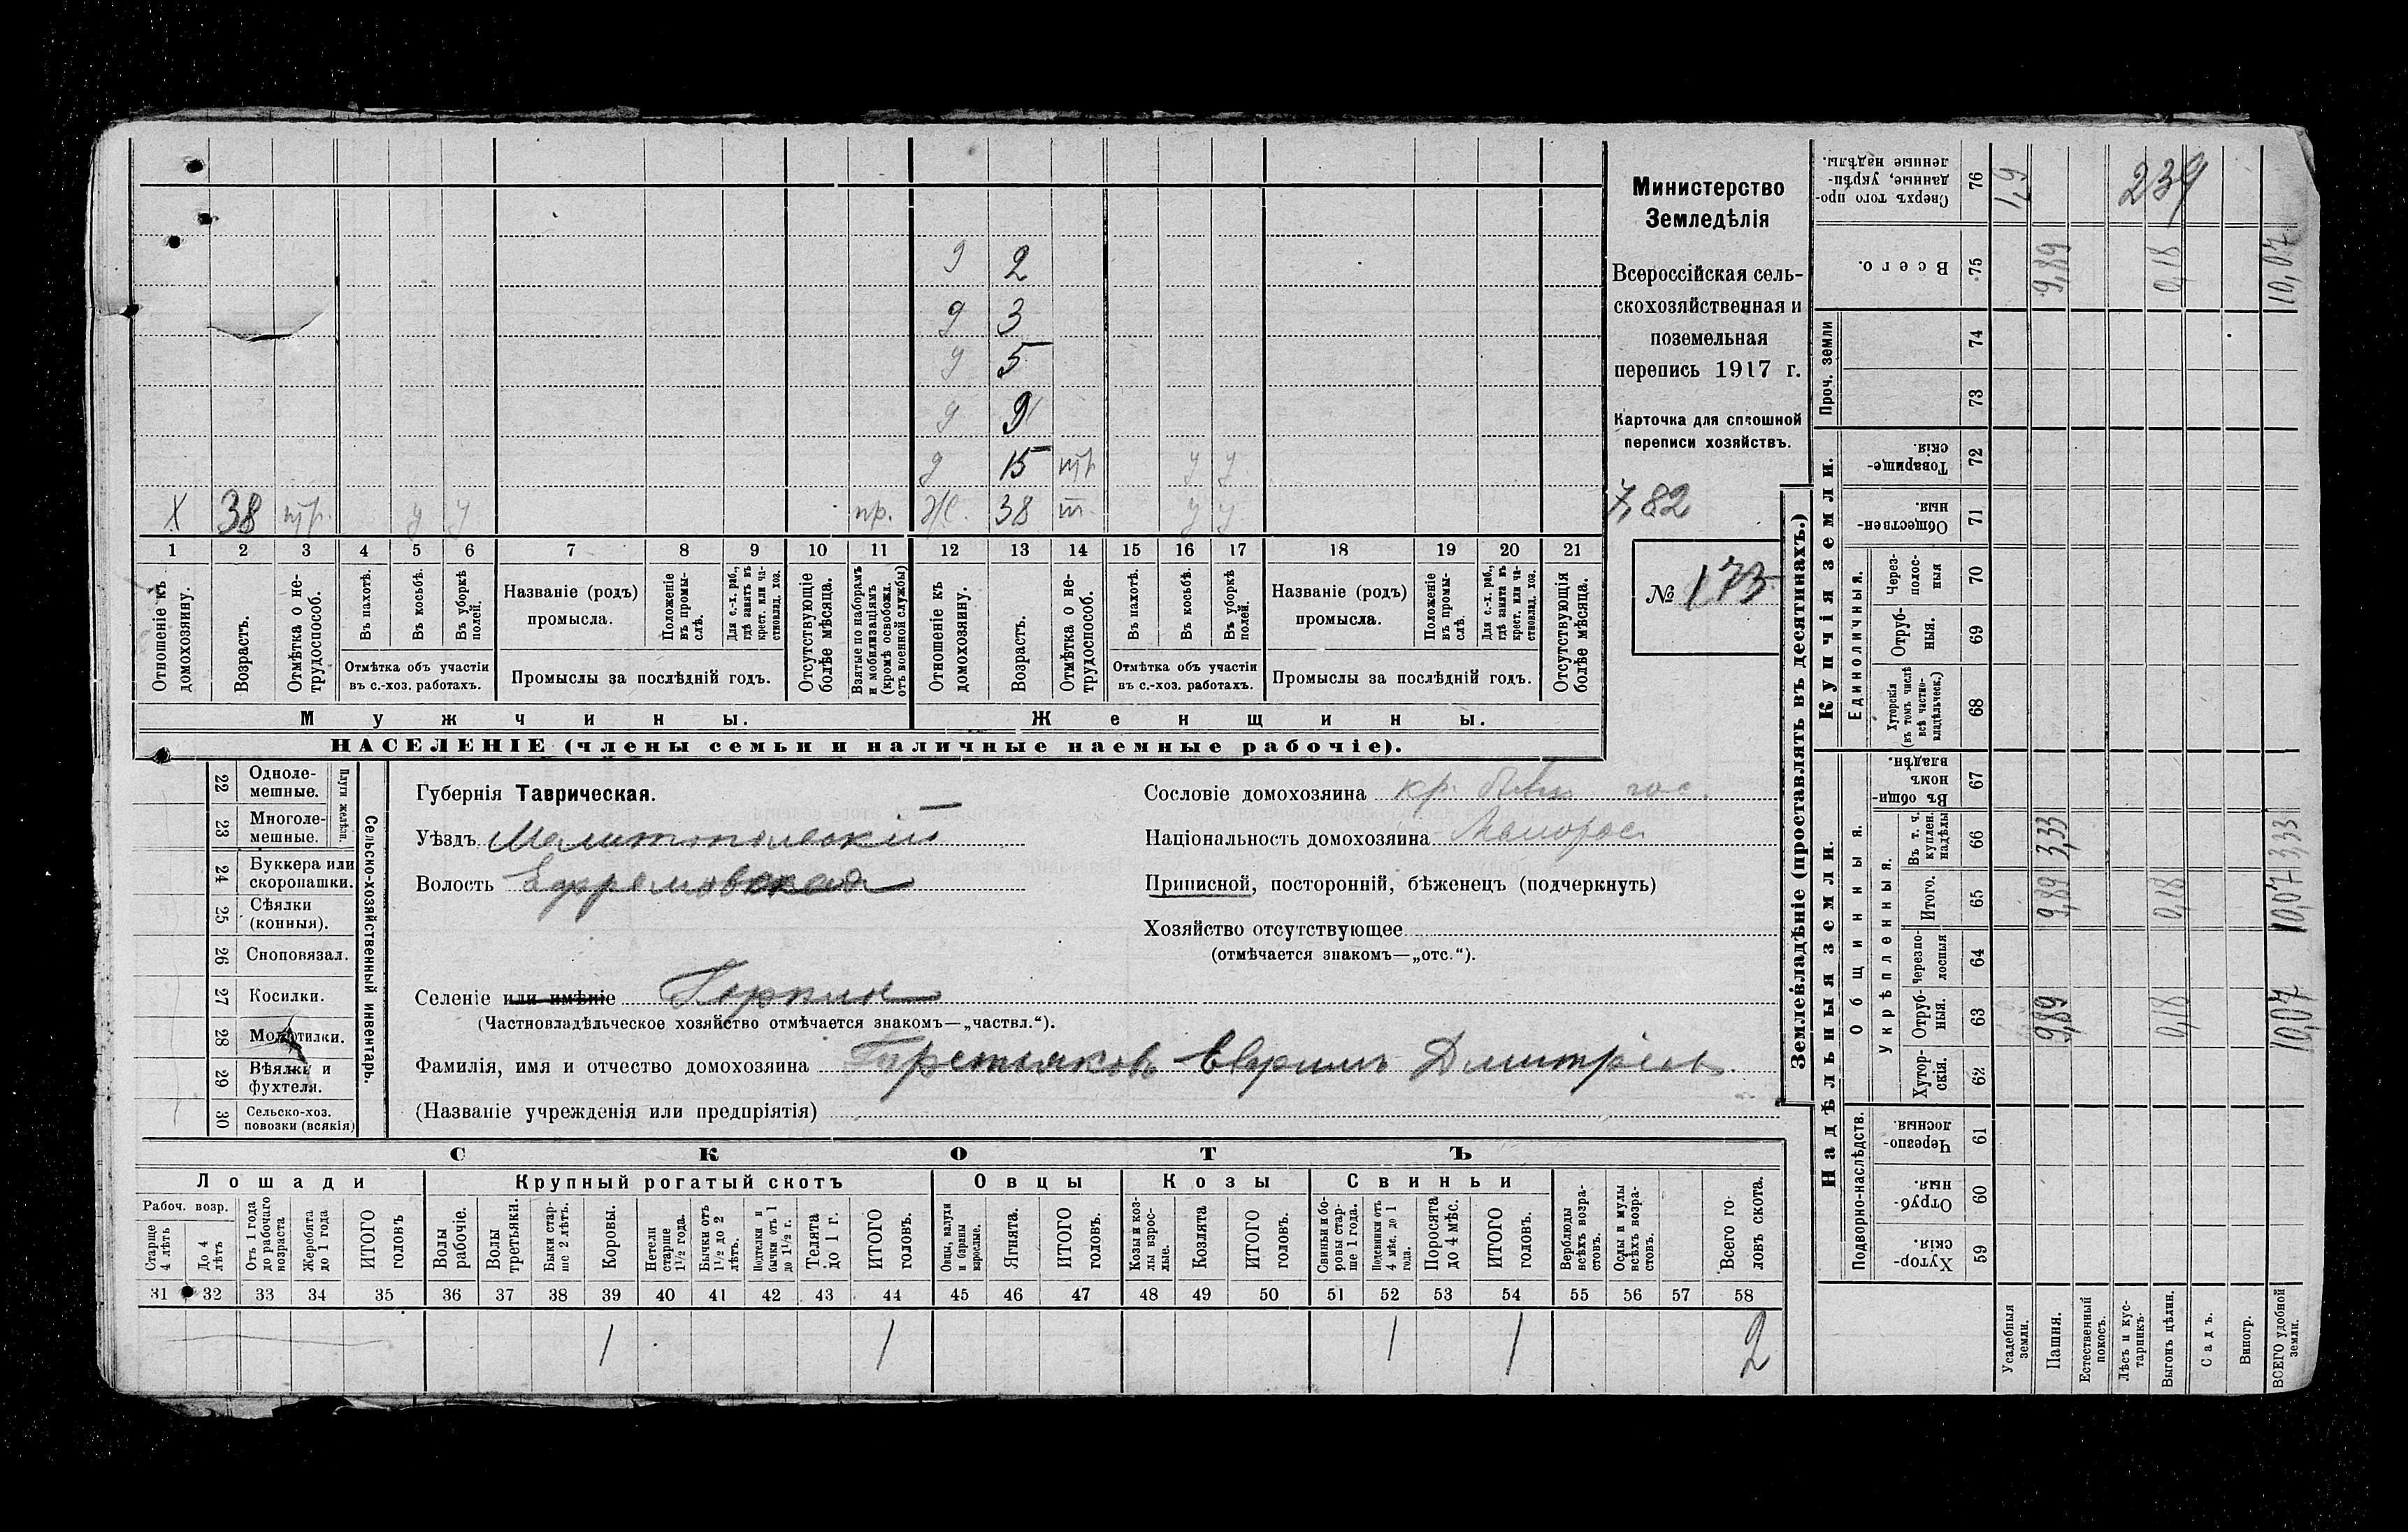 9 2
9 3
9 5
9 9
9 15 тр у у
X 38 тр. у у пр. ж. 38 т. у у
1 2 3 4 5 6 7 8 9 10 11 12 13 14 15 16 17 18 19 20 21
Отношеніе къ домохозяину.
Возрастъ.
Отмѣтка о не-
трудоспособ.
Въ пахотѣ.
Въ косьбѣ.
Въ уборкѣ
полей.
Отмѣтка объ участіи
въ с.-хоз. работахъ.
Названіе (родъ)
промысла.
Положеніе
въ промы-
слѣ.
Для с.-х. раб.,
гдѣ занятъ въ
крест. или ча-
стновлад. хоз.
Промыслы за послѣдній годъ.
Отсутствующіе
болѣе мѣсяца.
Взятые по наборамъ
и мобилизаціямъ
(кромѣ освобожд.
отъ военной службы)
Отношеніе къ
домохозяину.
Возрастъ.
Отмѣтка о не-
трудоспособ.
Въ пахотѣ.
Въ косьбѣ.
Въ уборкѣ
полей.
Отмѣтка объ участіи
въ с.-хоз. работахъ.
Названіе (родъ)
промысла.
Положеніе
въ промы-
слѣ.
Для с.-х. раб.,
гдѣ занята въ
крест. или ча-
стновлад. хоз.
Промыслы за послѣдній годъ.
Отсутствующія
болѣе мѣсяца.
Мужчины.
Женщины.
НАСЕЛЕНІЕ (члены семьи и наличные наемные рабочіе).
Министерство
Земледѣлія
Всероссійская сель-
скохозяйственная и
поземельная
перепись 1917 г.
Карточка для сплошной
переписи хозяйствъ.
782
№ 173
22 Одноле-
мешные.
23 Многоле-
мешные.
Плуги желѣзн.
24 Буккера или
скоропашки.
25 Сѣялки
(конныя).
26 Сноповязал.
27 Косилки.
28 Молотилки.
29 Вѣялки и
фухтеля.
30 Сельско-хоз.
повозки (всякія)
Сельско-хозяйственный инвентарь.
Губернія Таврическая.
Уѣздъ Мелитопольскій
Волость Ефремовская
Селеніе или имѣніе Горпин
(Частновладѣльческое хозяйство отмѣчается знакомъ—„частвл.“).
Фамилія, имя и отчество домохозяина Третьяковъ Ефримъ Дмитріев
(Названіе учрежденія или предпріятія)
Сословіе домохозяина кр. быв. гос.
Національность домохозяина Малорос
Приписной, посторонній, бѣженецъ (подчеркнуть)
Хозяйство отсутствующее
(отмѣчается знакомъ—„отс.“).
СКОТЪ
Лошади
Крупный рогатый скотъ
Овцы
Козы
Свиньи
Рабоч. возр.
Старше
4 лѣтъ
До 4
лѣтъ
Отъ 1 года
до рабочаго
возраста
Жеребята
до 1 года
ИТОГО
головъ
Волы
рабочіе.
Волы
третьяки.
Быки стар-
ше 2 лѣтъ.
Коровы.
Нетели
старше
1½ года.
Бычки отъ
1½ до 2
лѣтъ.
Подтелки и
бычки отъ 1
до 1½ г.
Телята
до 1 г.
ИТОГО
головъ.
Овцы, валухи
и бараны
взрослые.
Ягнята.
ИТОГО
головъ.
Козы и коз-
лы взрос-
лые.
Козлята
ИТОГО
головъ.
Свиньи и бо-
ровы стар-
ше 1 года.
Подсвинки отъ
4 мѣс. до 1
года.
Поросята
до 4 мѣс.
ИТОГО
головъ.
Верблюды
всѣхъ возра-
стовъ.
Ослы и мулы
всѣхъ возра-
стовъ.
Всего го-
ловъ скота.
31 32 33 34 35 36 37 38 39 40 41 42 43 44 45 46 47 48 49 50 51 52 53 54 55 56 57 58
1 1 1 1 2
Землевладѣніе (проставлять въ десятинахъ.)
Надѣльныя земли.
Купчія земли.
Проч. земли
Сверхъ того про-
данные, укрѣп-
ленные надѣлы.
76
239
Всего.
75 9,89 0,18 10,07
74
73
Товарище-
скія
72
Обществен-
ныя.
71
Единоличныя.
Через-
полос-
ныя
70
Отруб-
ныя.
69
Хуторскія
(въ томъ числѣ
всѣ частно-
владѣльческ.)
68
Общинныя.
Въ общи-
номъ
владѣн.
67
Укрѣпленныя.
Въ т. ч.
куплен.
надѣлы
66 3,33 333
Итого.
65 9,89 0,18 10,07
Черезпо-
лосныя
64
Отруб-
ныя.
63 9,89 0,18 10,07
Хутор-
скія.
62
Подворно-наслѣдств.
Черезпо-
лосныя.
61
Отруб-
ныя.
60
Хутор-
скія.
59
Усадебныя
земли.
Пашня.
Естественный
покосъ.
Лѣсъ и кус-
тарникъ.
Выгонъ цѣлин.
Садъ.
Виногр.
ВСЕГО удобной
земли.